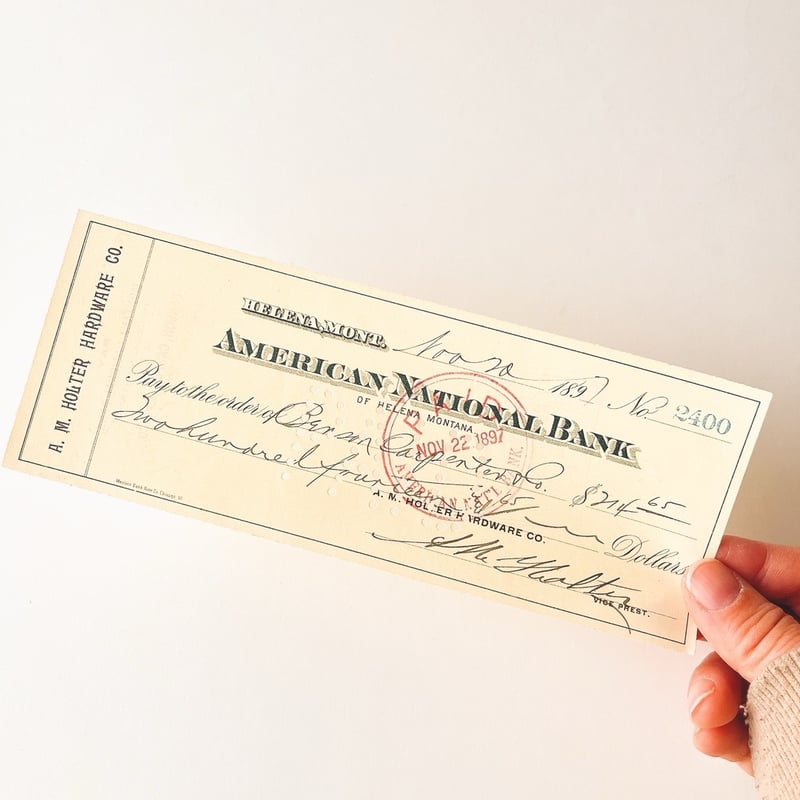 A. M. HOLTER HARDWARE CO.
HELENA, MONT. Nov 20 1897 No. 2400
AMERICAN NATIONAL BANK
OF HELENA MONTANA
Pay to the order of Benson Carpenter Co. $214 65
Two hundred four 65 Dollars
PAID
NOV 22 1897
AMERICAN NAT'L BANK.
A. M. HOLTER HARDWARE CO.
A M Holter
VICE PREST.